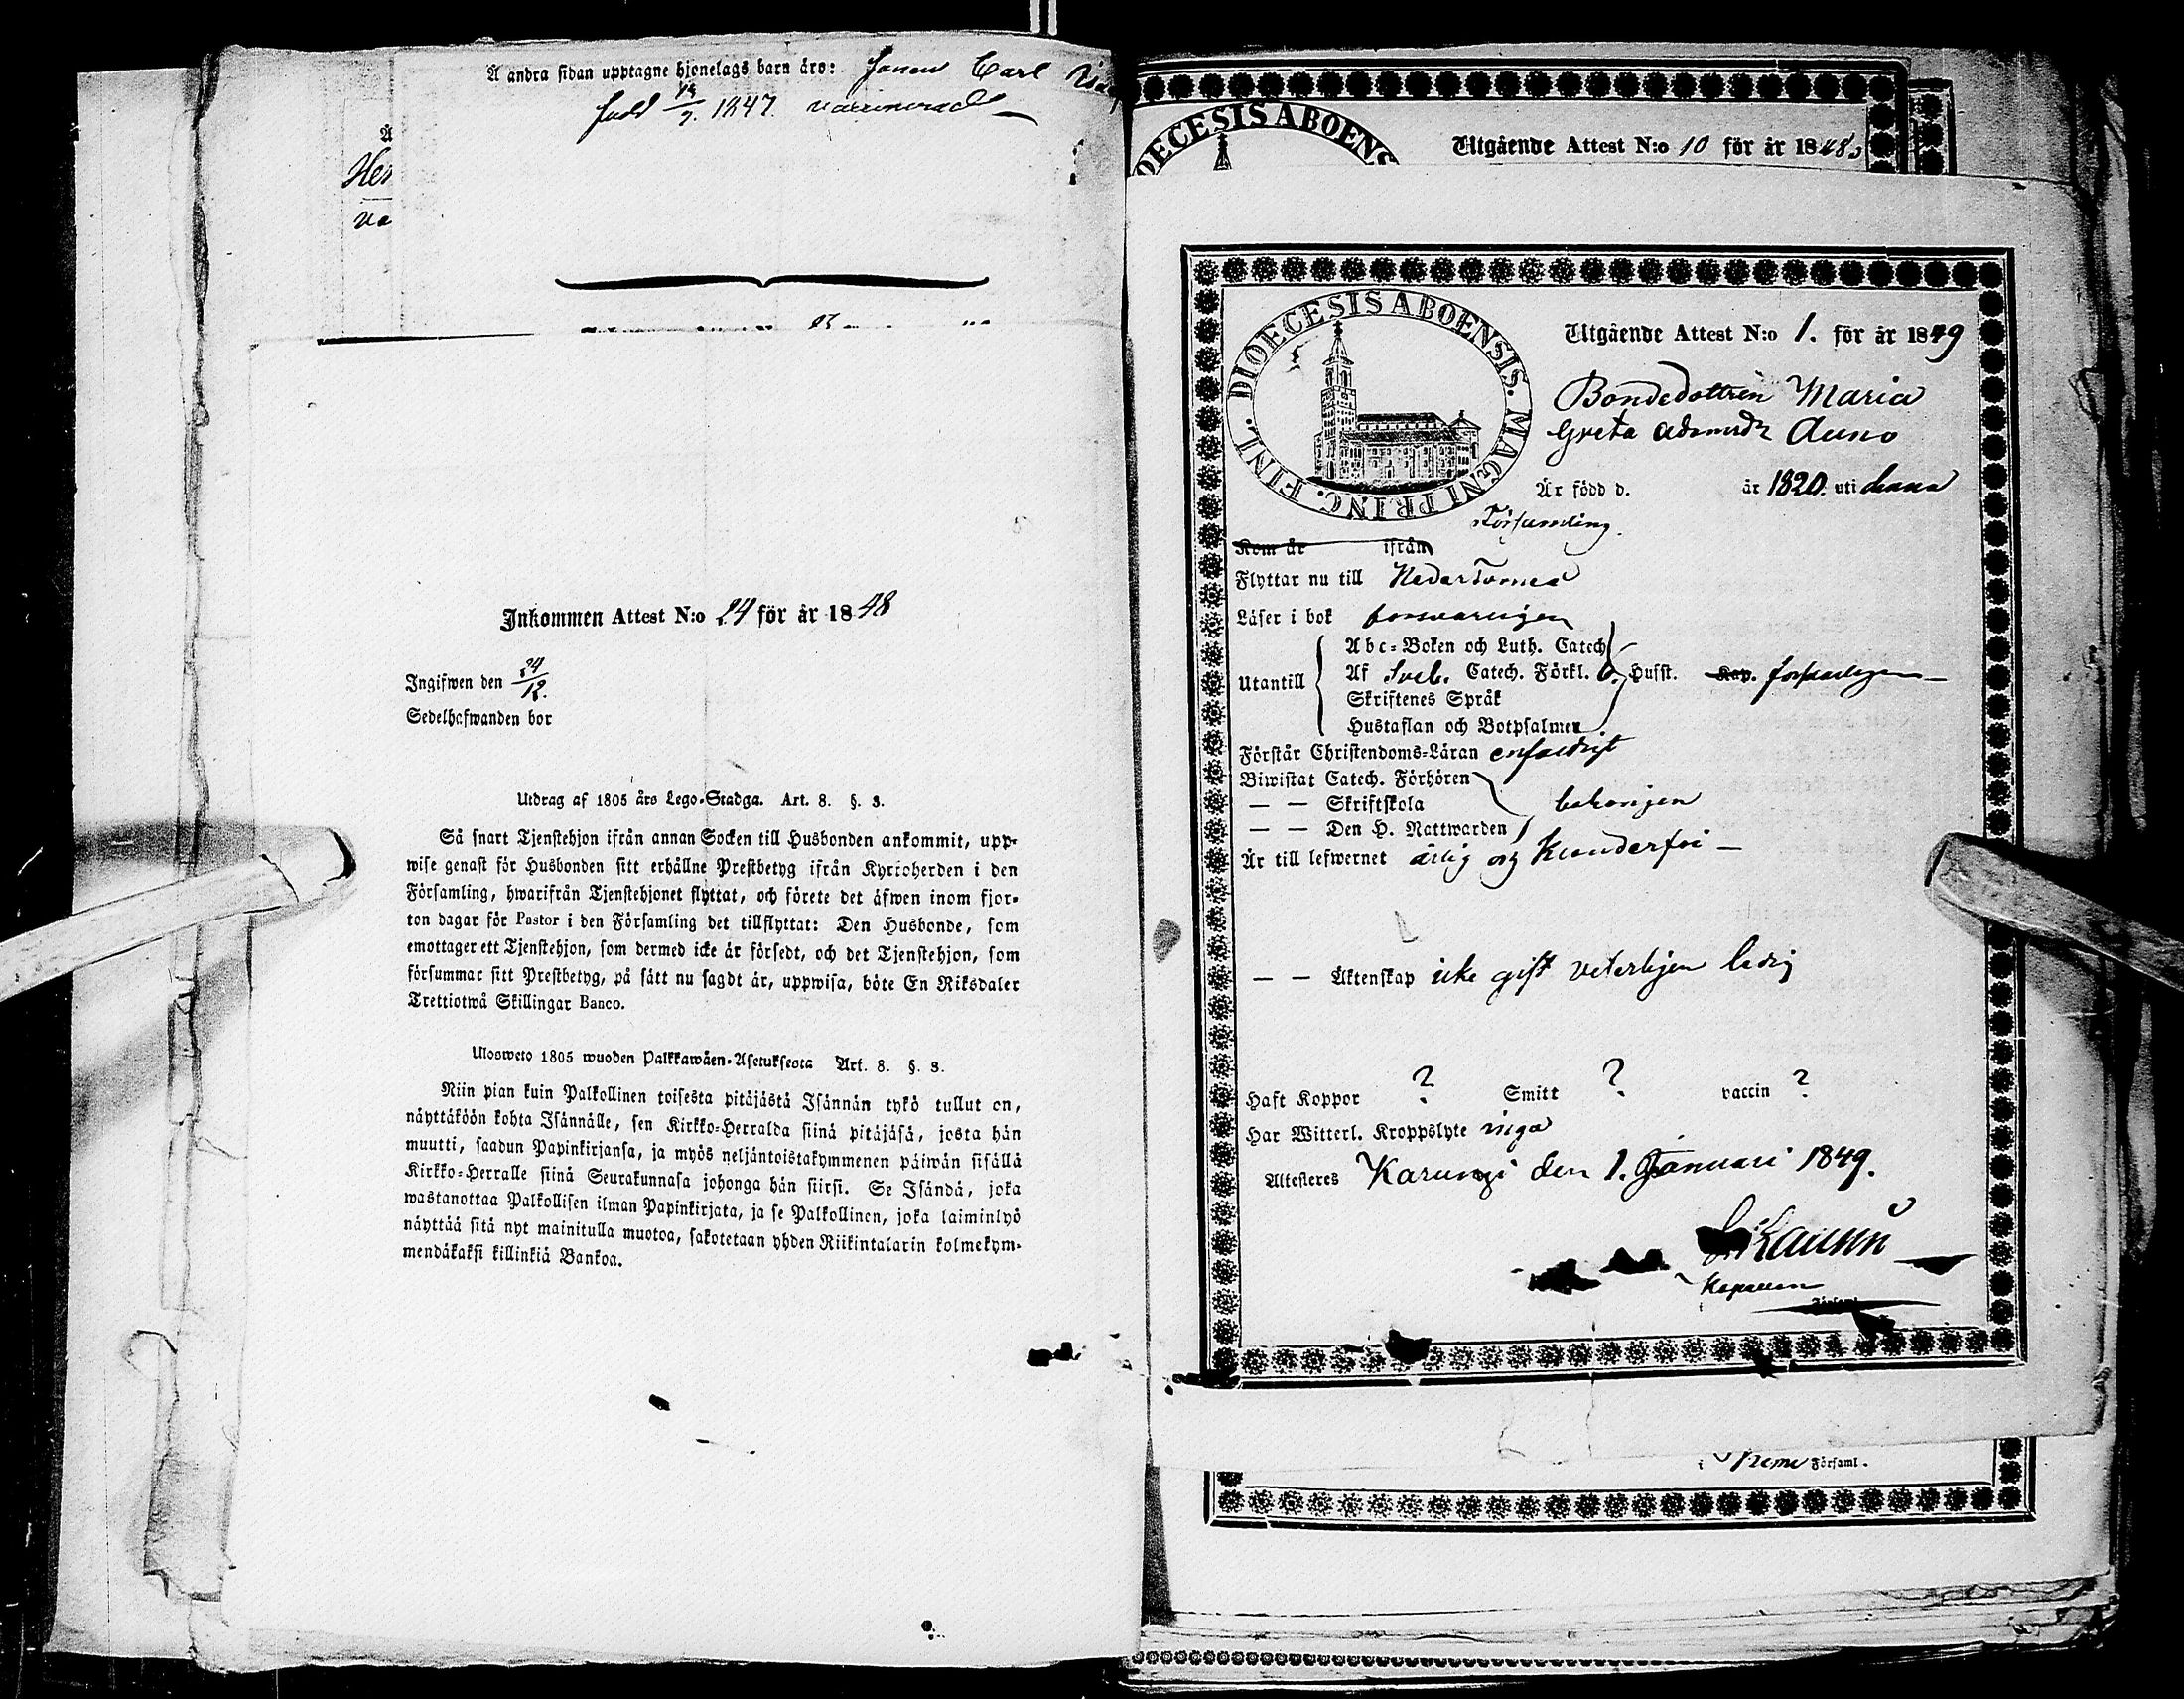 Å andra sidan upptagne hjonelags barn äro: Sonen Carl
född 19/7. 1847. vaccinerad
Å
Her
va
Inkommen Attest N:o 24 för år 1848
Ingifwen den 24/12.
Sedelhafwanden bor
Utdrag af 1805 års Lego-Stadga. Art. 8. §. 3.
Så snart Tjenstehjon ifrån annan Socken till Husbonden ankommit, upp-
wise genast för Husbonden sitt erhållne Prestbetyg ifrån Kyrkoherden i den
Församling, hwarifrån Tjenstehjonet flyttat, och förete det äfwen inom fjor-
ton dagar för Pastor i den Församling det tillflyttat: Den Husbonde, som
emottager ett Tjenstehjon, som dermed icke är försedt, och det Tjenstehjon, som
försummar sitt Prestbetyg, på sätt nu sagdt är, uppwisa, böte En Riksdaler
Trettiotwå Skillingar Banco.
Ulosweto 1805 wuoden Palkkawäen-Asetuksesta Art. 8. §. 3.
Niin pian kuin Palkollinen toisesta pitäjästä Isännän tykö tullut on,
näyttäköön kohta Isännälle, sen Kirkko-Herralda siinä pitäjäsä, josta hän
muutti, saadun Papinkirjansa, ja myös neljäntoistakymmenen päiwän sisällä
Kirkko-Herralle siinä Seurakunnasa johonga hän siirsi. Se Isändä, joka
wastanottaa Palkollisen ilman Papinkirjata, ja se Palkollinen, joka laiminlyö
näyttää sitä nyt mainitulla muotoa, sakotetaan yhden Riikintalarin kolmekym-
mendäkaksi killinkiä Bankoa.
DIOECESIS ABOENS
Utgående Attest N:o 10 för år 1848
DIOECESIS ABOENSIS. MAGNI PRINC. FINL.
Utgående Attest N:o 1. för år 1849
Bondedottren Maria
Greta Adamsdr Auno
Är född d. år 1820. uti denna
Församling.
Kom år ifrån
Flyttar nu till Neder Torneå
Läser i bok försvarligen
Utantill
Abc-Boken och Luth. Catech
Af Sveb. Catech. Förkl. 6. Hufst. Kap. försvarligen
Skriftenes Språk
Hustaflan och Botpsalmen
Förstår Christendoms-Läran enfaldigt
Biwistat Catech. Förhören
— — Skriftskola behörigen
— — Den H. Nattwarden
Är till lefwernet ärlig och klanderfri —
— — Äktenskap icke gift veterligen ledig
Haft Koppor ? Smitt ? vaccin ?
Har Witterl. Kroppslyte inga
Attesteres Karungi den 1. Januari 1849.
Kapellan
Församl.
i Kemi Församl.